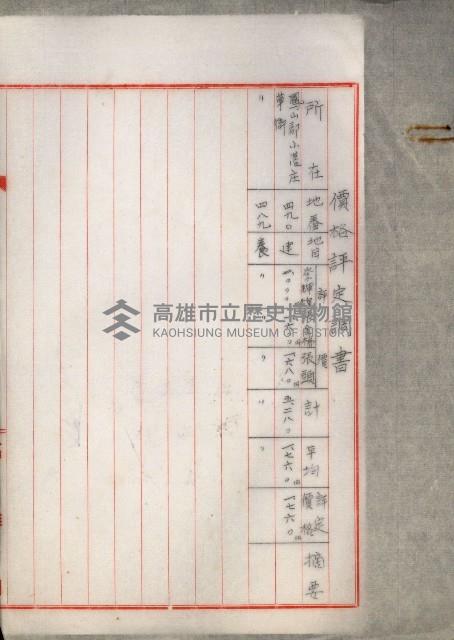 價格評定調書
所在
地番
地目
評價
張頭
計
平均
評定價格
摘要
鳳山郡小港庄
草衙
四九〇
建
一六八〇
五二八〇
一七六〇
一七六〇
〃
四八九
養
〃
〃
〃
〃
高雄市立歷史博物館
KAOHSIUNG MUSEUM OF HISTORY